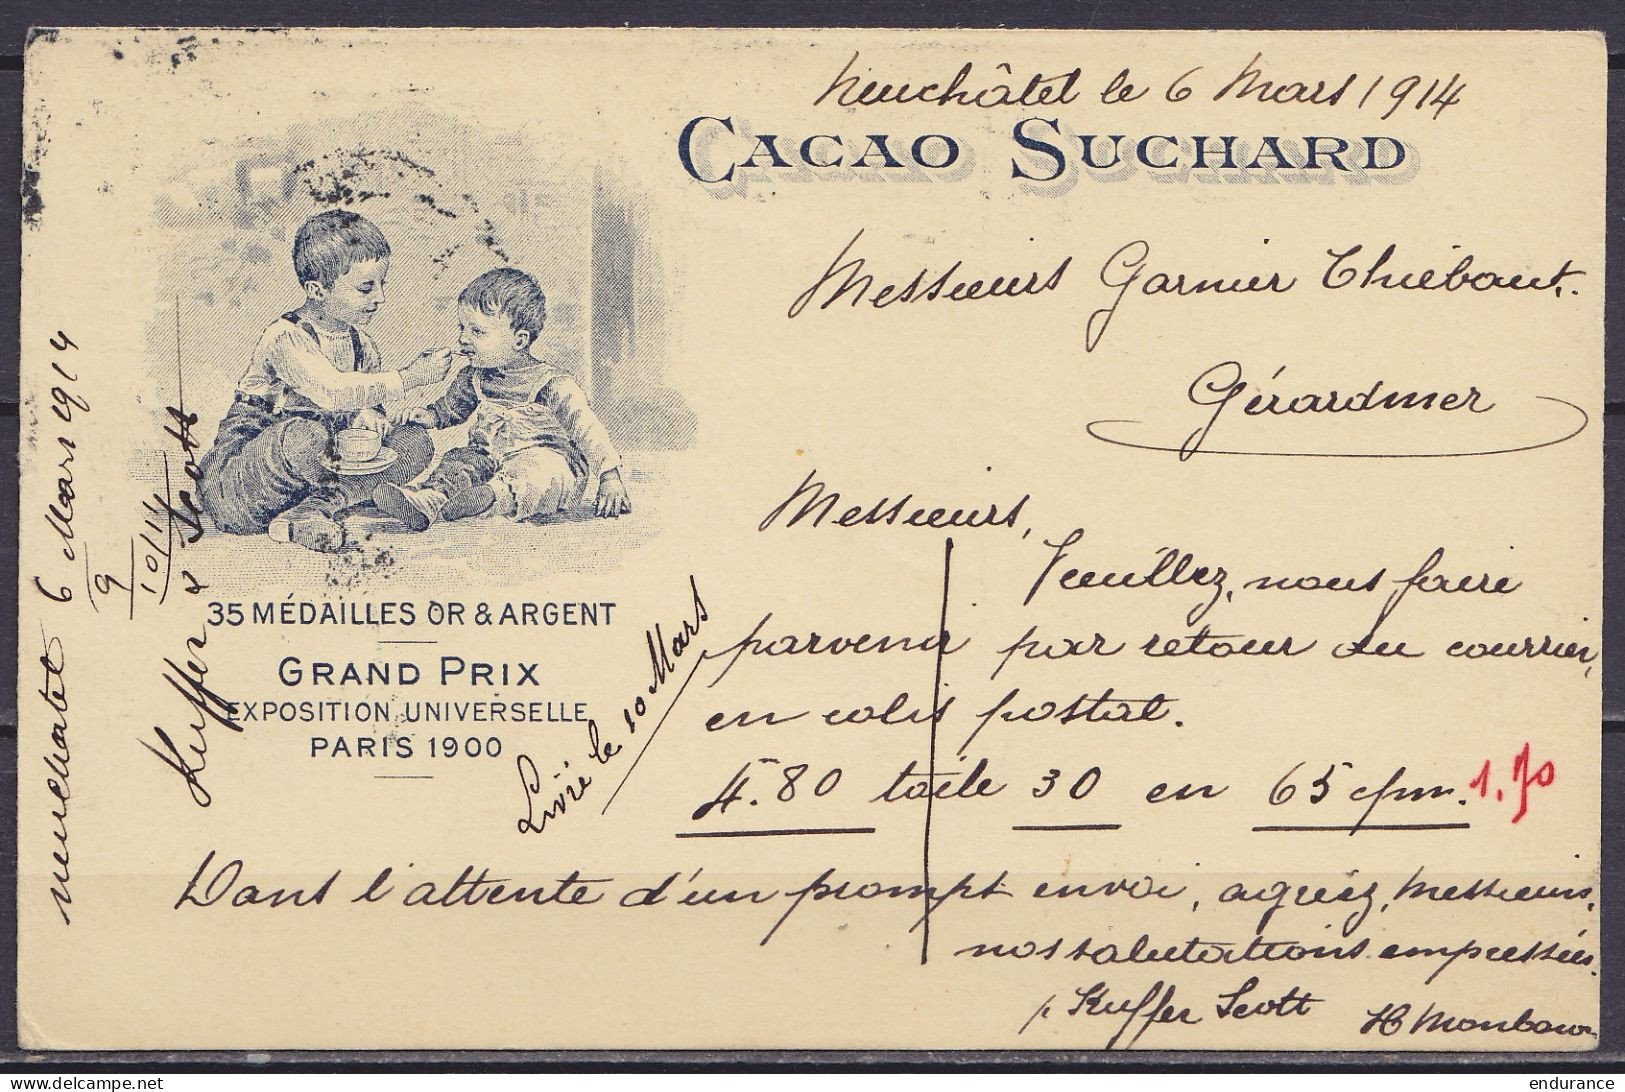 Neuchâtel le 6 Mars 1914
CACAO SUCHARD
Messieurs Garnier Thiébaut.
Gérardmer
Messieurs,
Veuillez, nous faire
parvenir par retour du courrier,
en colis postal.
4.80 toile 30 en 65 c/m. 1.70
Dans l'attente d'un prompt envoi, agréez, Messieurs,
nos salutations empressées.
p. Kuffer Scott
35 MÉDAILLES OR & ARGENT
GRAND PRIX
EXPOSITION UNIVERSELLE
PARIS 1900
Livré le 10 Mars
Neuchatel 6 Mars 1914
9
10/11
Kuffer & Scott
endurance